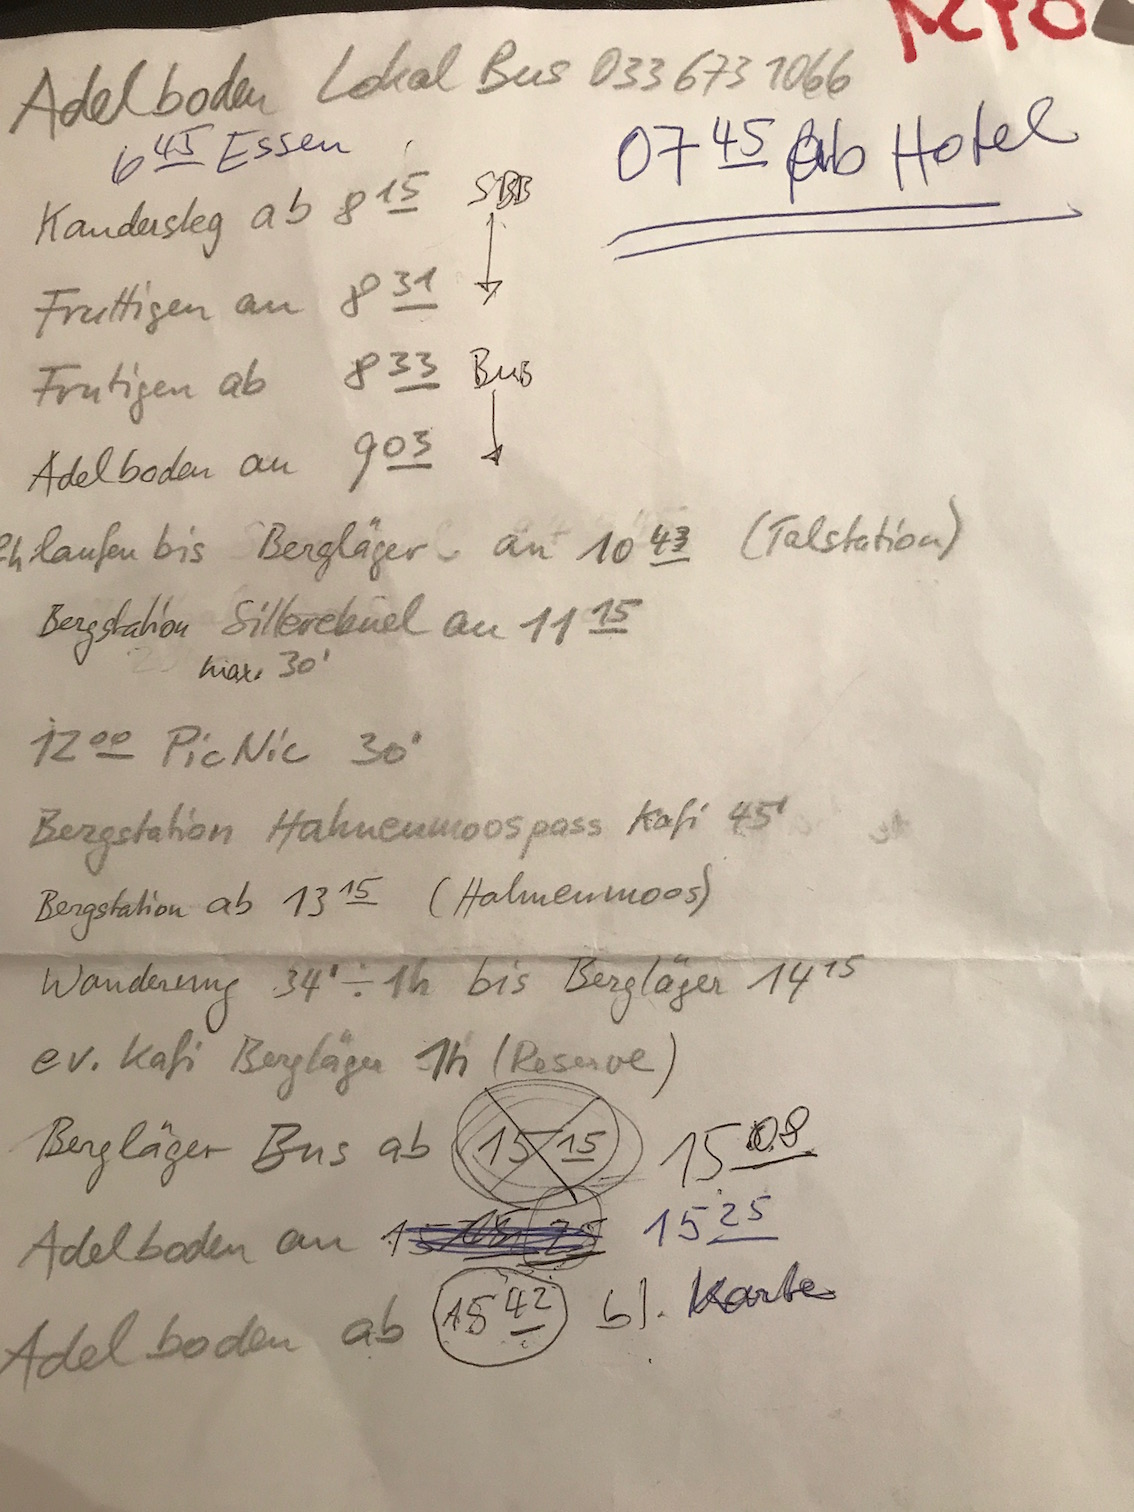 Adelboden Lokal Bus 033 673 1066
6 45 Essen
07 45 ab Hotel
Kandersteg ab 8 15 SBB
Fruttigen an 8 31
Frutigen ab 8 33 Bus
Adelboden an 9 03
2h laufen bis Bergläger an 10 43 (Talstation)
Bergstation Sillerebüel an 11 15
max. 30'
12 00 PicNic 30'
Bergstation Hahnenmoospass Kafi 45'
Bergstation ab 13 15 (Hahnenmoos)
Wanderung 34' ÷ 1h bis Bergläger 14 15
ev. Kafi Bergläger 1h (Reserve)
Bergläger Bus ab 15 15 15 08
Adelboden an 15 25
Adelboden ab 15 42 bl. Karte